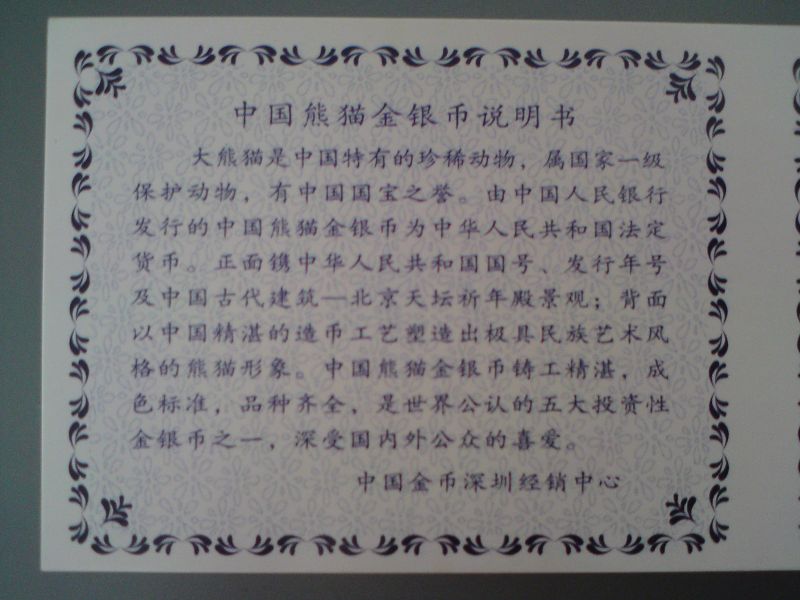 中国熊猫金银币说明书
大熊猫是中国特有的珍稀动物，属国家一级
保护动物，有中国国宝之誉。由中国人民银行
发行的中国熊猫金银币为中华人民共和国法定
货币。正面镌中华人民共和国国号、发行年号
及中国古代建筑—北京天坛祈年殿景观；背面
以中国精湛的造币工艺塑造出极具民族艺术风
格的熊猫形象。中国熊猫金银币铸工精湛，成
色标准，品种齐全，是世界公认的五大投资性
金银币之一，深受国内外公众的喜爱。
中国金币深圳经销中心